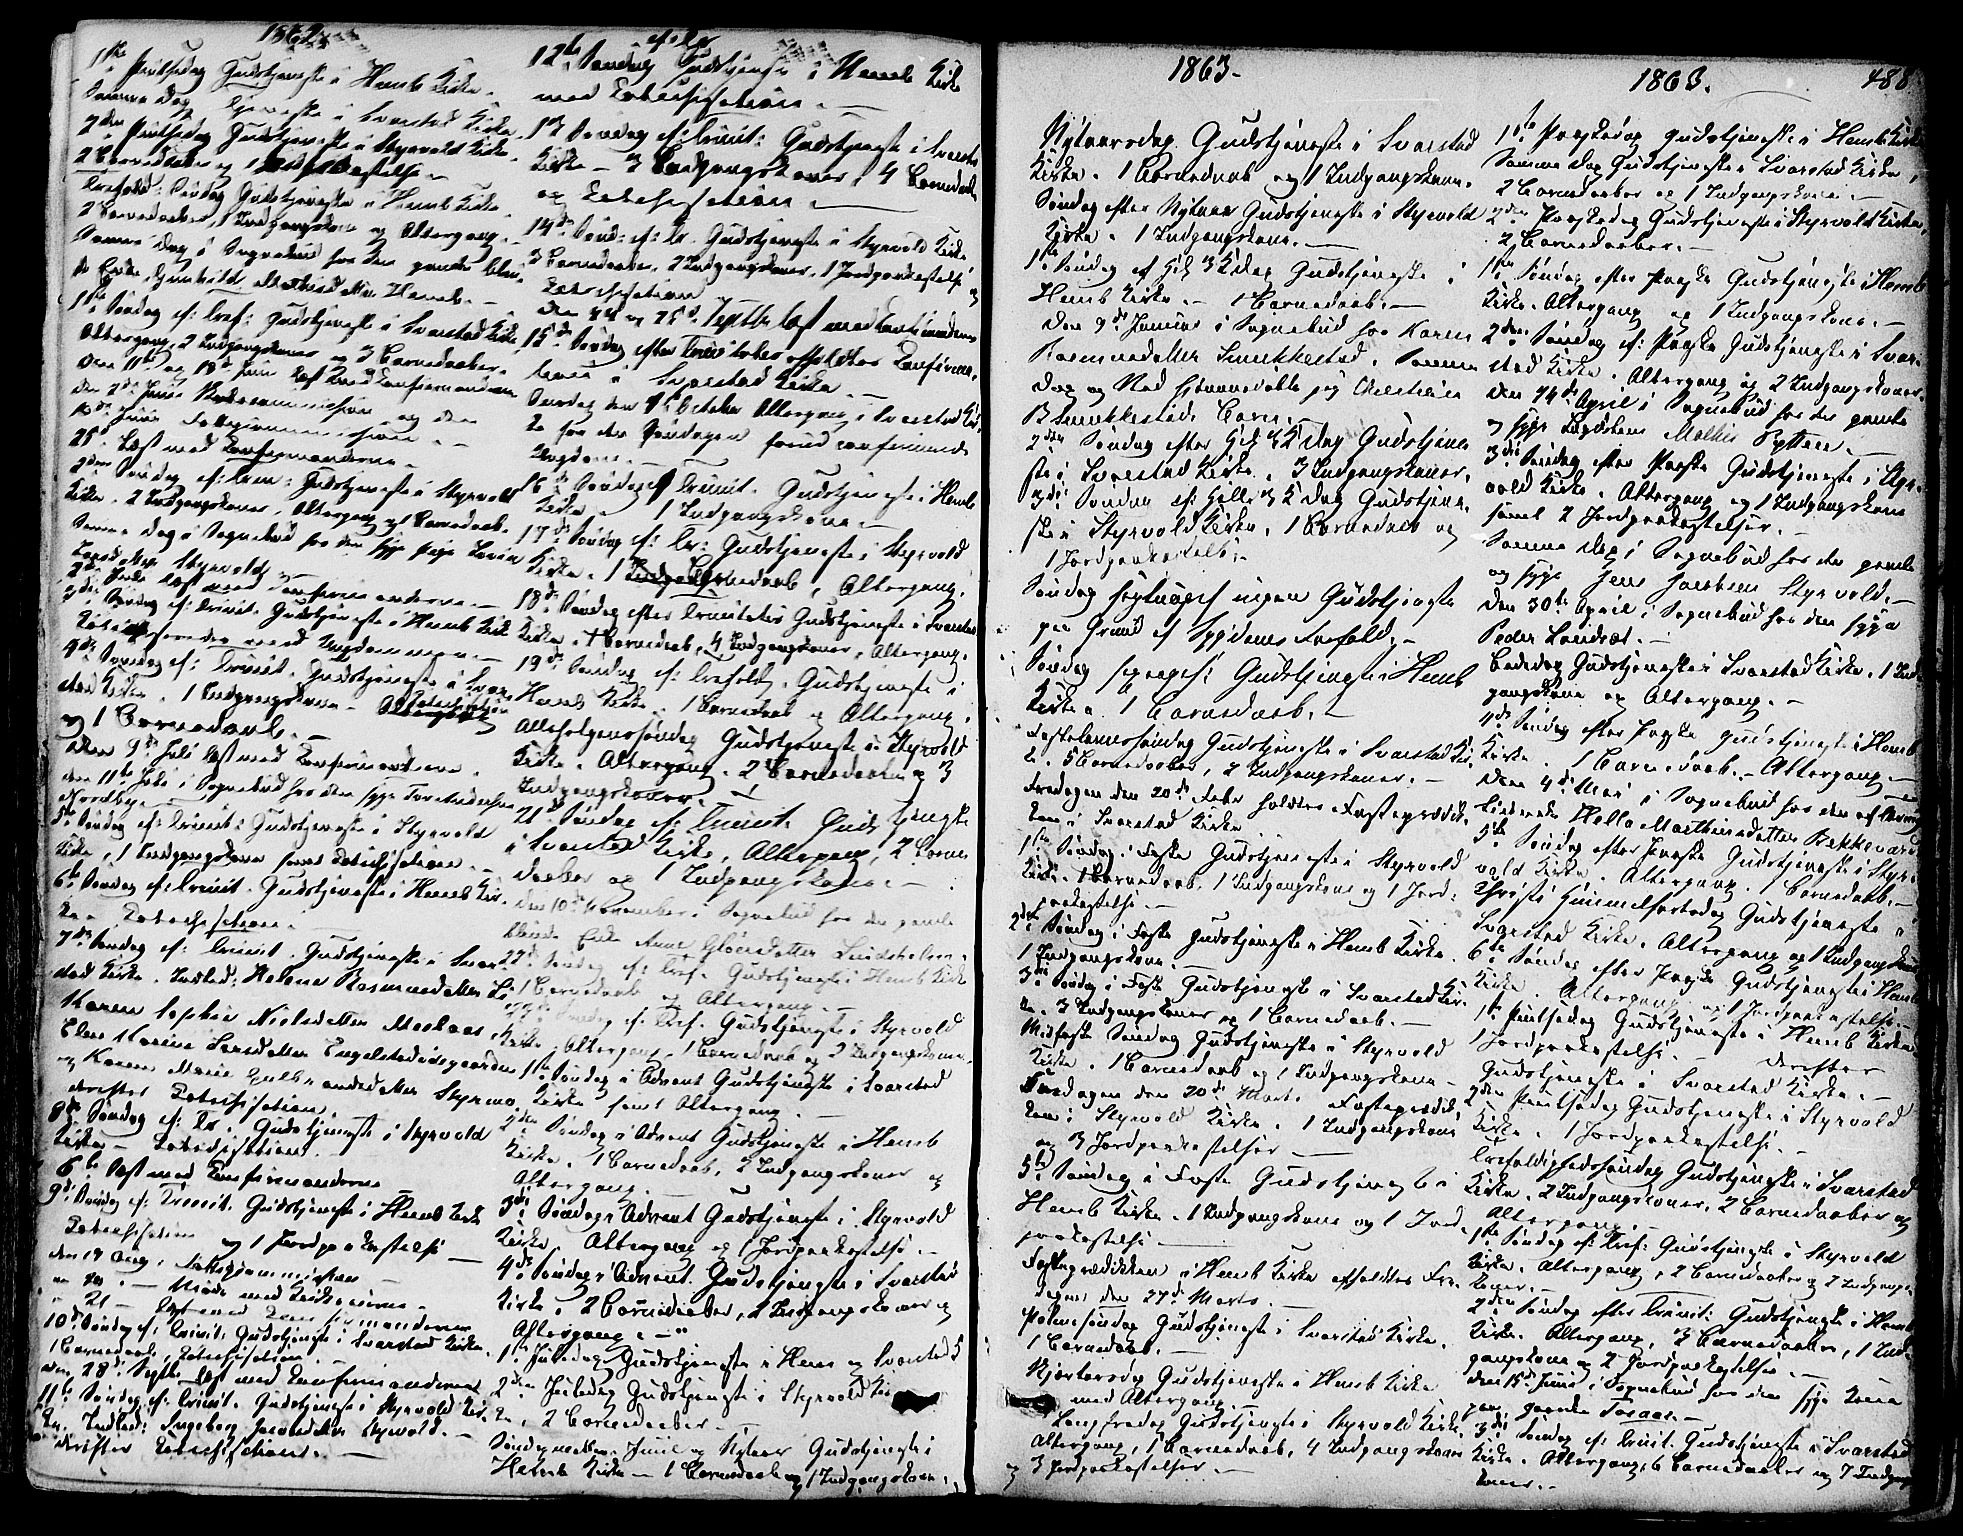 1862
1ste Pintsedag Gudstjeneste i Hemb Kirke.
Samme Dag Tjeneste i Svarstad Kirke.
2den Pintsedag Gudstjeneste i Styrvold Kirke.
2 Barnedaaber og 1 Jordpaakastelse
Trefold: Søndag Gudstjeneste i Hemb Kirke.
2 Barnedaaber, 1 Indgangskone og Altergang.
Samme Dag i Sognebud hos den gamle blin-
de Enke Gunhild Mathisdatter Hemb.
1ste Søndag ef: Tref: Gudstjeneste i Svarstad Kirke,
Altergang, 2 Indgangskoner og 3 Barnedaaber.
Den 11te og 18de Juni Læst med Confirmanderne
25 Læst med Confirmanderne
2den Søndag ef: Tren: Gudstjeneste i Styrvold
Kirke. 2 Indgangskoner, Altergang og 1 Barnedaab.
Samme Dag i Sognebud hos den syge Pige
Styrvold
3die Søndag ef: Trinit. Gudstjeneste i Hemb Kirke
med Ungdommen
4de Søndag ef: Trinit. Gudstjeneste i Svar-
stad Kirke. 1 Indgangskone
og 1 Barnedaab.
Den 9de Juli Læst med Confirmanderne.
Den 11te Juli i Sognebud hos den syge
5te Søndag ef: Trinit: Gudstjeneste i Styrvold
Kirke, 1 Indgangskone samt Catechisation.
6te Søndag ef: Trinit. Gudstjeneste i Hemb Kir-
ke. Catechisation.
7de Søndag ef: Trinit. Gudstjeneste i Svar-
stad Kirke. Indled: Helene Rasmusdatter
Karen Sophie Nielsdatter
Elen Karine Larsdatter
og Karen Marie Gulbrandsdatter Styrvo
derefter Catechisation.
8de Søndag ef: Tr. Gudstjeneste i Styrvold
Kirke. Catechisation.
6te Læst med Confirmanderne
9de Søndag ef: Trinit. Gudstjeneste i Hemb Kirke
Catechisation og 1 Jordpaakastelse
den 19 Aug.
21 Læst med Confirmanderne
10de Søndag ef: Trinit: Gudstjeneste i Svarstad Kirke.
1 Barnedaab, Catechisation.
den 28de Læst med Confirmanderne
11te Søndag ef: Trinit. Gudstjeneste i Styrvold Kir-
ke. Indled: Ingeborg Jacobsdatter Styrvold.
derefter Catechisation.
12te Søndag ef: Tr Gudstjeneste i Hemb Kirke
med Catechisation.
13 Søndag ef: Trinit: Gudstjeneste i Svarstad
Kirke. 3 Indgangskoner, 4 Barnedaaber
og Catechisation.
14de Sønd: ef: Tr. Gudstjeneste i Styrvold Kirke
3 Barnedaaber, 2 Indgangskoner, 1 Jordpaakastelse og
Catechisation
Den 24 og 25de Septbr læst med Confirmanderne
15de Søndag efter Trinitatis afholdtes Confirma-
tion i Svarstad Kirke.
Søndag den 1ste October Altergang i Svarstad Kir-
ke for den Søndagen forud confirmerede
Ungdom.
16de Søndag ef Trinit. Gudstjeneste i Hemb
Kirke. 1 Indgangskone.
17de Søndag ef: Tr: Gudstjeneste i Styrvold
Kirke. 1 Barnedaab, Altergang.
18de Søndag efter Trinitatis Gudstjeneste i Svarstad
Kirke. 1 Barnedaab, 4 Indgangskoner, Altergang.
19de Søndag ef: Trefold. Gudstjeneste i
Hemb Kirke. 1 Barnedaab og Altergang.
Allehelgenssøndag Gudstjeneste i Styrvold
Kirke. Altergang. 2 Barnedaaber og 3
Indgangskoner.
21de Søndag ef: Trinit: Gudstjeneste
i Svarstad Kirke, Altergang, 2 Barne-
daaber og 1 Indgangskone.
Den 10de November i Sognebud hos den gamle
blinde Enke Anne
22de Søndag ef: Tref. Gudstjeneste i Hemb Kirke
1 Barnedaab og Altergang.
Søndag ef: Tref. Gudstjeneste i Styrvold
Kirke, Altergang. 1 Barnedaab og 2 Indgangskoner.
1ste Søndag i Advent Gudstjeneste i Svarstad
Kirke samt Altergang.
2den Søndag i Advent Gudstjeneste i Hemb
Kirke. 1 Barnedaab, 2 Indgangskoner og
Altergang.
3die Søndag i Advent Gudstjeneste i Styrvold
Kirke Altergang og 1 Jordpaakastelse.
4de Søndag i Advent. Gudstjeneste i Svarstad
Kirke. 2 Barnedaaber, 2 Indgangskoner og
Altergang.
1ste Juledag Gudstjeneste i Hemb og Svarstad K
2den Juledag Gudstjeneste i Styrvold Kir-
ke, 2 Barnedaaber.
Søndag mellem Juul og Nytaar Gudstjeneste i
Hemb Kirke. 1 Barnedaab og 1 Indgangskone.
1863.
Nytaarsdag Gudstjeneste i Svarstad
Kirke. 1 Barnedaab og 1 Indgangskone.
Søndag efter Nytaar Gudstjeneste i Styrvold
Kirke. 1 Indgangskone.
1ste Søndag ef Hel 3 K dag Gudstjeneste i
Hemb Kirke. 1 Barnedaab.
Den 9de Januar i Sognebud hos Karen
Rasmusdatter Smukkestad. Samme
Dag og Sted hjemmedøbte jeg Christian
Smukkestads Barn.
2den Søndag efter Hel 3 K dag Gudstjene-
ste i Svarstad Kirke. 3 Indgangskoner.
3die Søndag ef: Hellig 3 K dag Gudstjene-
ste i Styrvold Kirke, 1 Barnedaab og
1 Jordpaakastelse.
Søndag Septuages ingen Gudstjeneste
paa Grund af Sygdoms Forfald.
Søndag Sexages: Gudstjeneste i Hemb
Kirke 1 Barnedaab.
Fastelavnssøndag Gudstjeneste i Svarstad Kir-
ke. 5 Barnedaaber, 2 Indgangskoner.
Fredagen den 20de Febr holdtes Fasteprædik-
ken i Svarstad Kirke
1ste Søndag i Faste Gudstjeneste i Styrvold
Kirke. 1 Barnedaab, 1 Indgangskone og 1 Jord-
paakastelse.
2den Søndag i Faste Gudstjeneste i Hemb Kirke.
1 Indgangskone.
3die Søndag i Faste Gudstjeneste i Svarstad Kir-
ke. 3 Indgangskoner og 1 Barnedaab.
Midfaste Søndag Gudstjeneste i Styrvold
Kirke. 1 Barnedaab og 1 Indgangskone
Fredagen den 20de Marts Fasteprædik-
ken i Styrvold Kirke. 1 Indgangskone
og 3 Jordpaakastelser
5te Søndag i Faste Gudstjeneste i
Hemb Kirke. 1 Indgangskone og 1 Jord-
paakastelse.
Fasteprædikken i Hemb Kirke afholdtes Fre-
dagen den 27de Marts.
Palmesøndag Gudstjeneste i Svarstad Kirke.
1 Barnedaab.
Skjærtorsdag Gudstjeneste i Hemb Kirke
med Altergang.
Langfredag Gudstjeneste i Styrvold Kirke.
Altergang, 1 Barnedaab, 4 Indgangskoner
og 3 Jordpaakastelser.
1863. 488
1ste Paaskedag Gudstjeneste i Hemb Kirke
Samme Dag Gudstjeneste i Svarstad Kirke,
2 Barnedaaber og 1 Indgangskone.
2den Paaskedag Gudstjeneste i Styrvold Kirke,
2 Barnedaaber.
1ste Søndag efter Paaske Gudstjeneste i Hemb
Kirke. Altergang og 1 Indgangskone.
2den Søndag ef: Paaske Gudstjeneste i Svar-
stad Kirke. Altergang og 2 Indgangskoner.
Den 24de April i Sognebud hos den gamle
og syge
3die Søndag efter Paaske Gudstjeneste i Styr-
vold Kirke. Altergang og 1 Indgangskone
samt 2 Jordpaakastelser.
Samme Dag i Sognebud hos den gamle
og syge Jens Jacobsen Styrvold.
Den 30te April i Sognebud hos den syge
Peder
Bededag Gudstjeneste i Svarstad Kirke. 1 Ind-
gangskone og Altergang.
4de Søndag efter Paaske Gudstjeneste i Hemb
Kirke. 1 Barnedaab. Altergang.
Den 4de Mai i Sognebud hos den
Helle Mathiasdatter
5te Søndag efter Paaske Gudstjeneste i Styr-
vold Kirke. Altergang. 1 Barnedaab.
Christi Himmelfartsdag Gudstjeneste i
Svarstad Kirke. Altergang og 1 Indgangskone
6te Søndag efter Paaske Gudstjeneste i Hemb
Kirke Altergang og 1 Jordpaakastelse.
1ste Pintsedag Gudstjeneste i Hemb Kirke
1 Jordpaakastelse. derefter
Gudstjeneste i Svarstad Kirke.
2den Pintsedag Gudstjeneste i Styrvold
Kirke. 1 Jordpaakastelse.
Trefoldighedssøndag Gudstjeneste i Svarstad
Kirke. 2 Indgangskoner, 2 Barnedaaber og
Altergang.
1ste Søndag ef: Tref: Gudstjeneste i Styrvold
Kirke. Altergang, 2 Barnedaaber og 2 Indgangs-
koner.
2den Søndag efter Trinit: Gudstjeneste i Hemb
Kirke. Altergang, 3 Barnedaaber, 1 Ind-
gangskone og 2 Jordpaakastelser.
Den 15de Juni i Sognebud hos den syge Kone
3die Søndag ef: Trinit. Gudstjeneste i Svarstad
Kirke. Altergang, 6 Barnedaaber og 7 Indgangs-
koner.